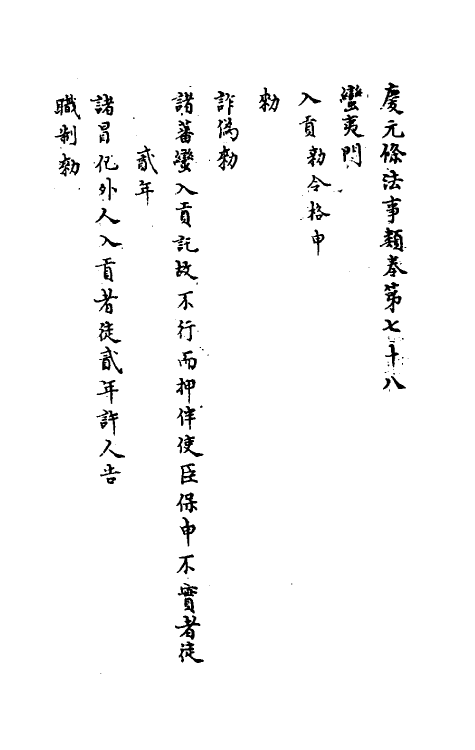 慶元條法事類卷第七十八
蠻夷門
入貢勑令格申
勑
詐偽勑
諸蕃蠻入貢託故不行而押伴使臣保申不實者徒
貳年
諸冒化外人入貢者徒貳年許人告
職制勑